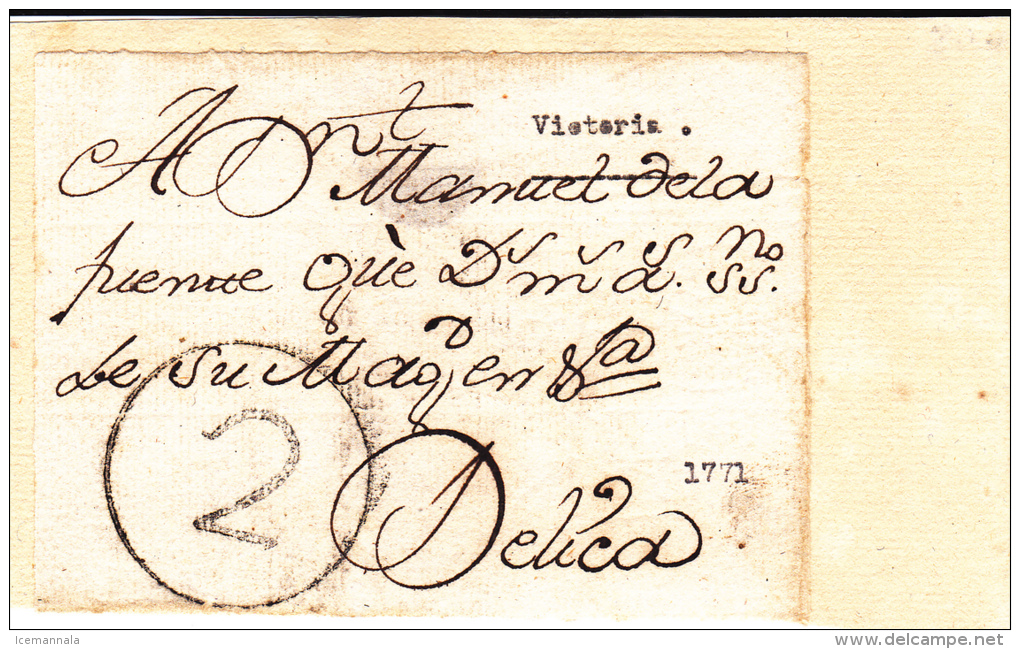 Victoria.
A Dn Manuel dela
fuente què Ds ms as. ssno.
de su Magd en
2
1771
Delica
Icemannala
www.delcampe.net